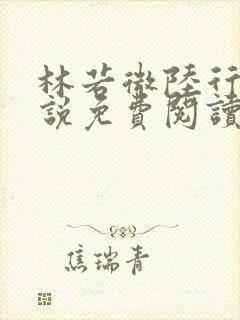 林若微陸行
說免費閱讀
焦瑞青